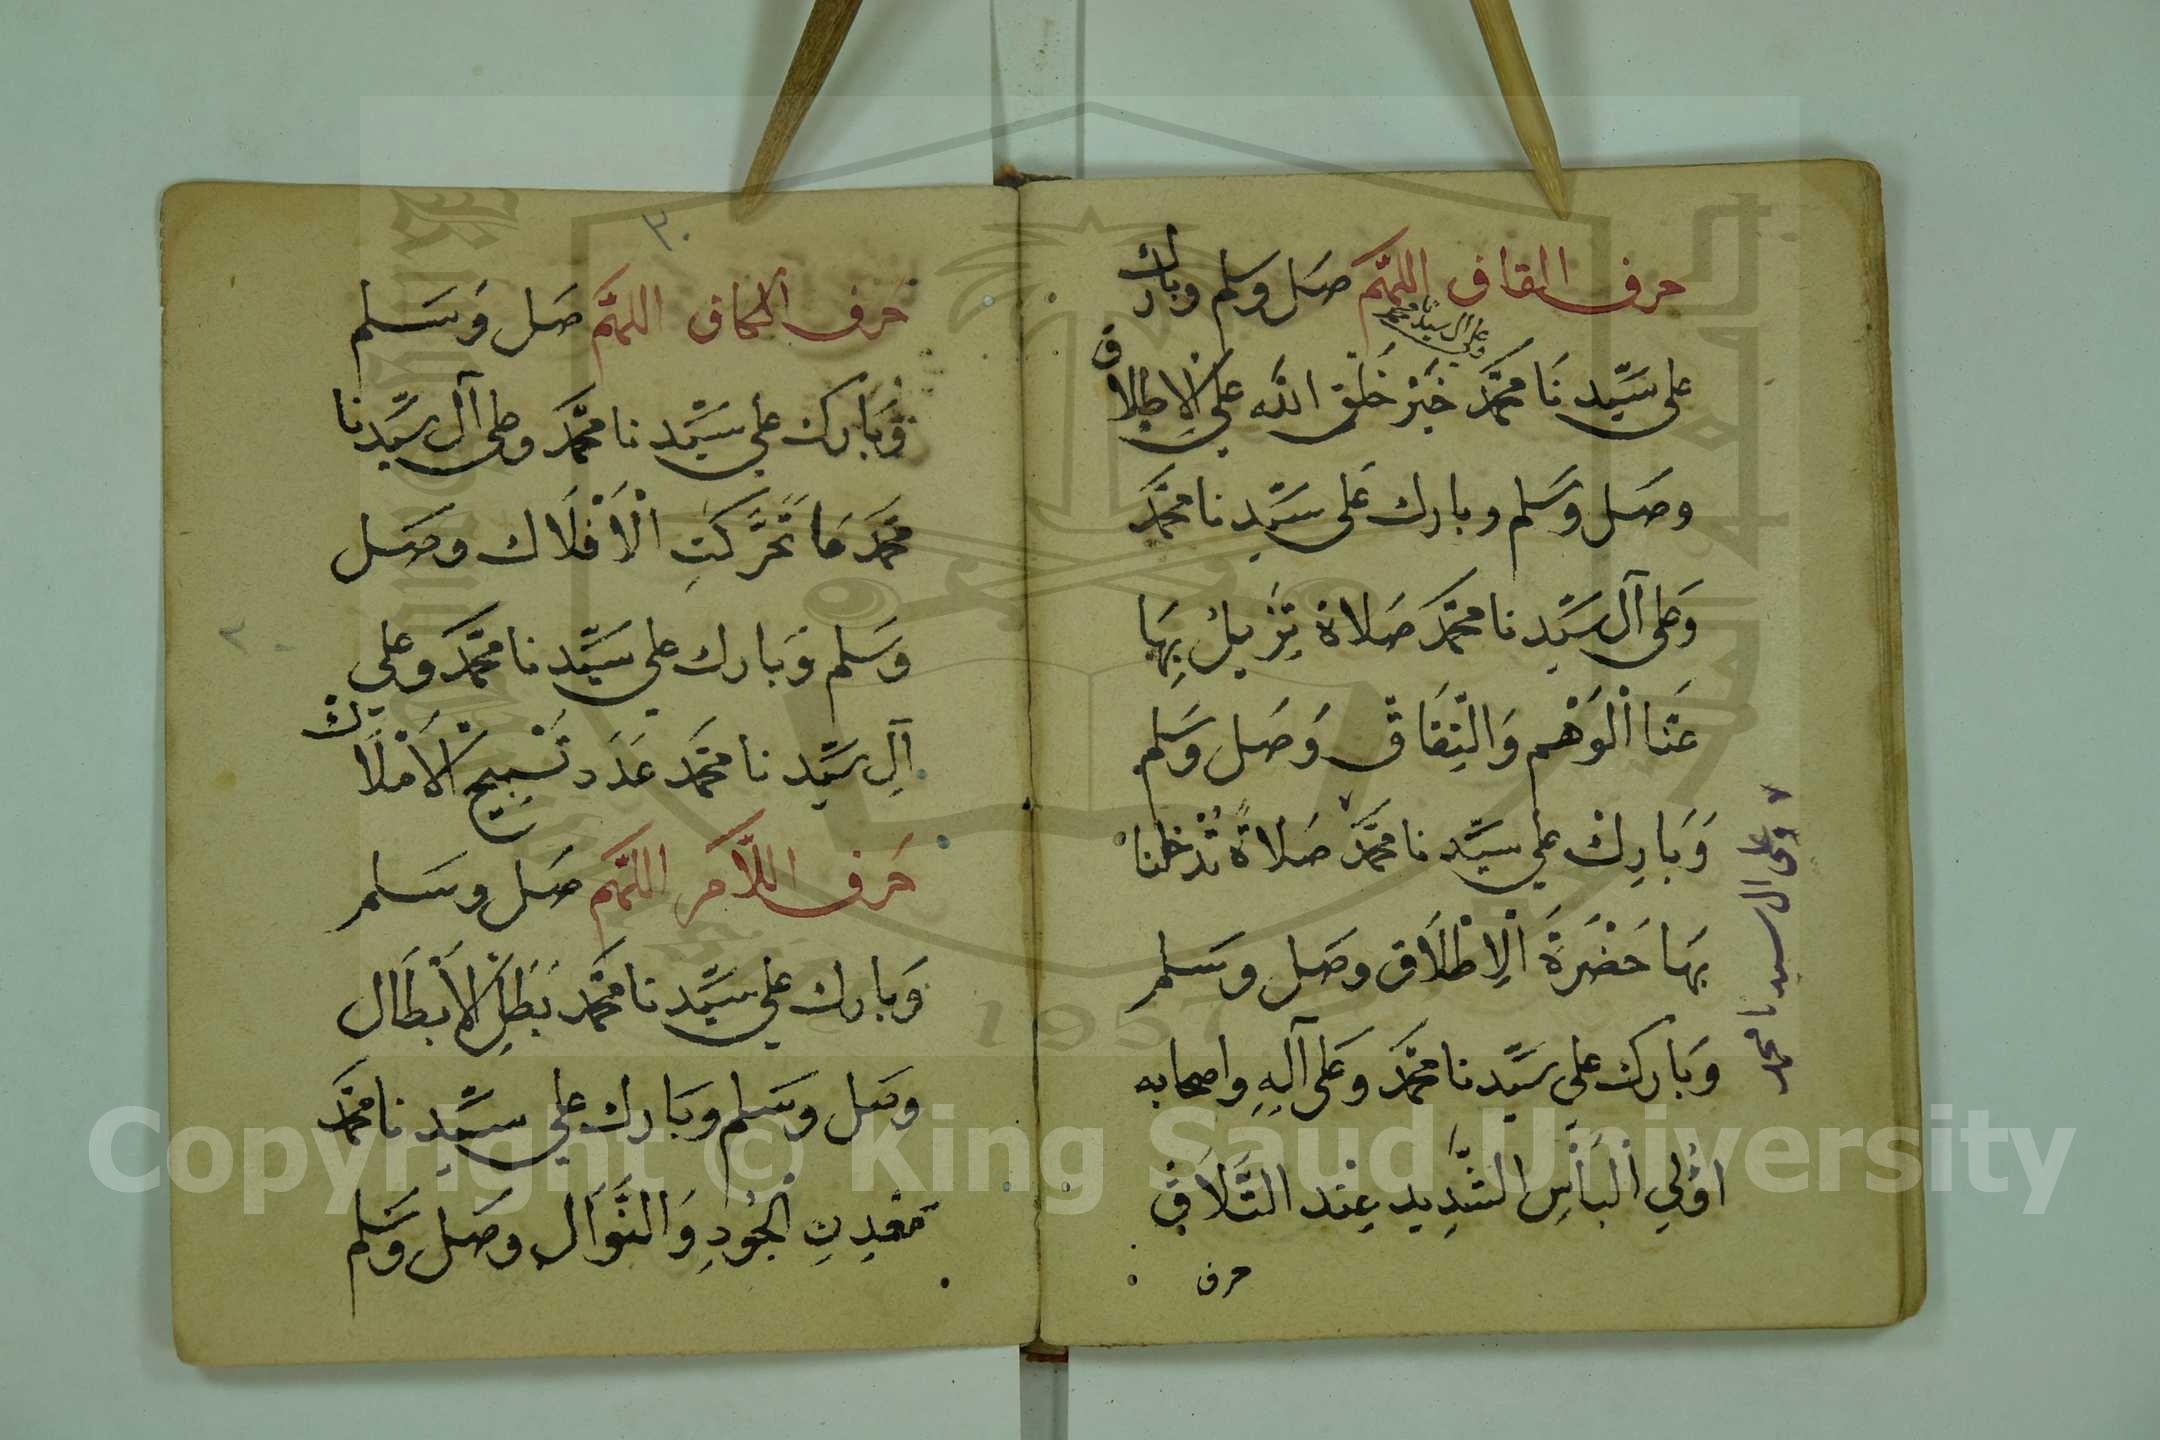 حرف القاف اللهم صل وسلم وبارك
وعلى ال سيدنا محمد
على سَيّدِنَا محمّد خَيْرِ خَلْقِ الله على الاِطلاق
وصَل وسَلم وبارك عَلى سَيّدنا محمّد
وَعلى آل سَيّدنا محمّد صَلاة تِزيلُ بِهَا
عَنا الْوَهْم وَالنِّفَاق وَصَل وَسَلم
وَبَارِكْ على سيّدنا محمّد صَلاةً تُدْخلنا
بِهَا حَضْرَةَ الْاِطْلَاق وصَل وسَلم
وَبَارك على سَيّدنا محمّد وعَلى آلِهِ واصحابه
اوُلِي الْبَأْسِ الشَّدِيد عِنْد التَّلَاقِ
حرف
وعلى ال سيدنا محمد
٣٠
حَرف الكاف اللهم صَل وَسَلم
وَبَارك على سَيّدنا محمّد وعلى آل سَيّدنا
محَمّد مَا تَحَرَّكَتِ الْاَفْلَاك وصَل
وَسَلم وَبَارك على سَيّدنا محمّد وعلى
آلِ سَيّدِنا محَمّد عَدَد تَسْبِيحِ الْاَمْلَاك
حَرف اللَّام اللهم صَل وسَلم
وَبارك على سَيّدنا محَمّد بَطَلِ الْاَبطَال
وصَل وسَلم وبَارك على سيّدنا محمّد
مَعْدِنِ الْجُودِ وَالنَّوَال وصَل وسَلم
Copyright © King Saud University
1957